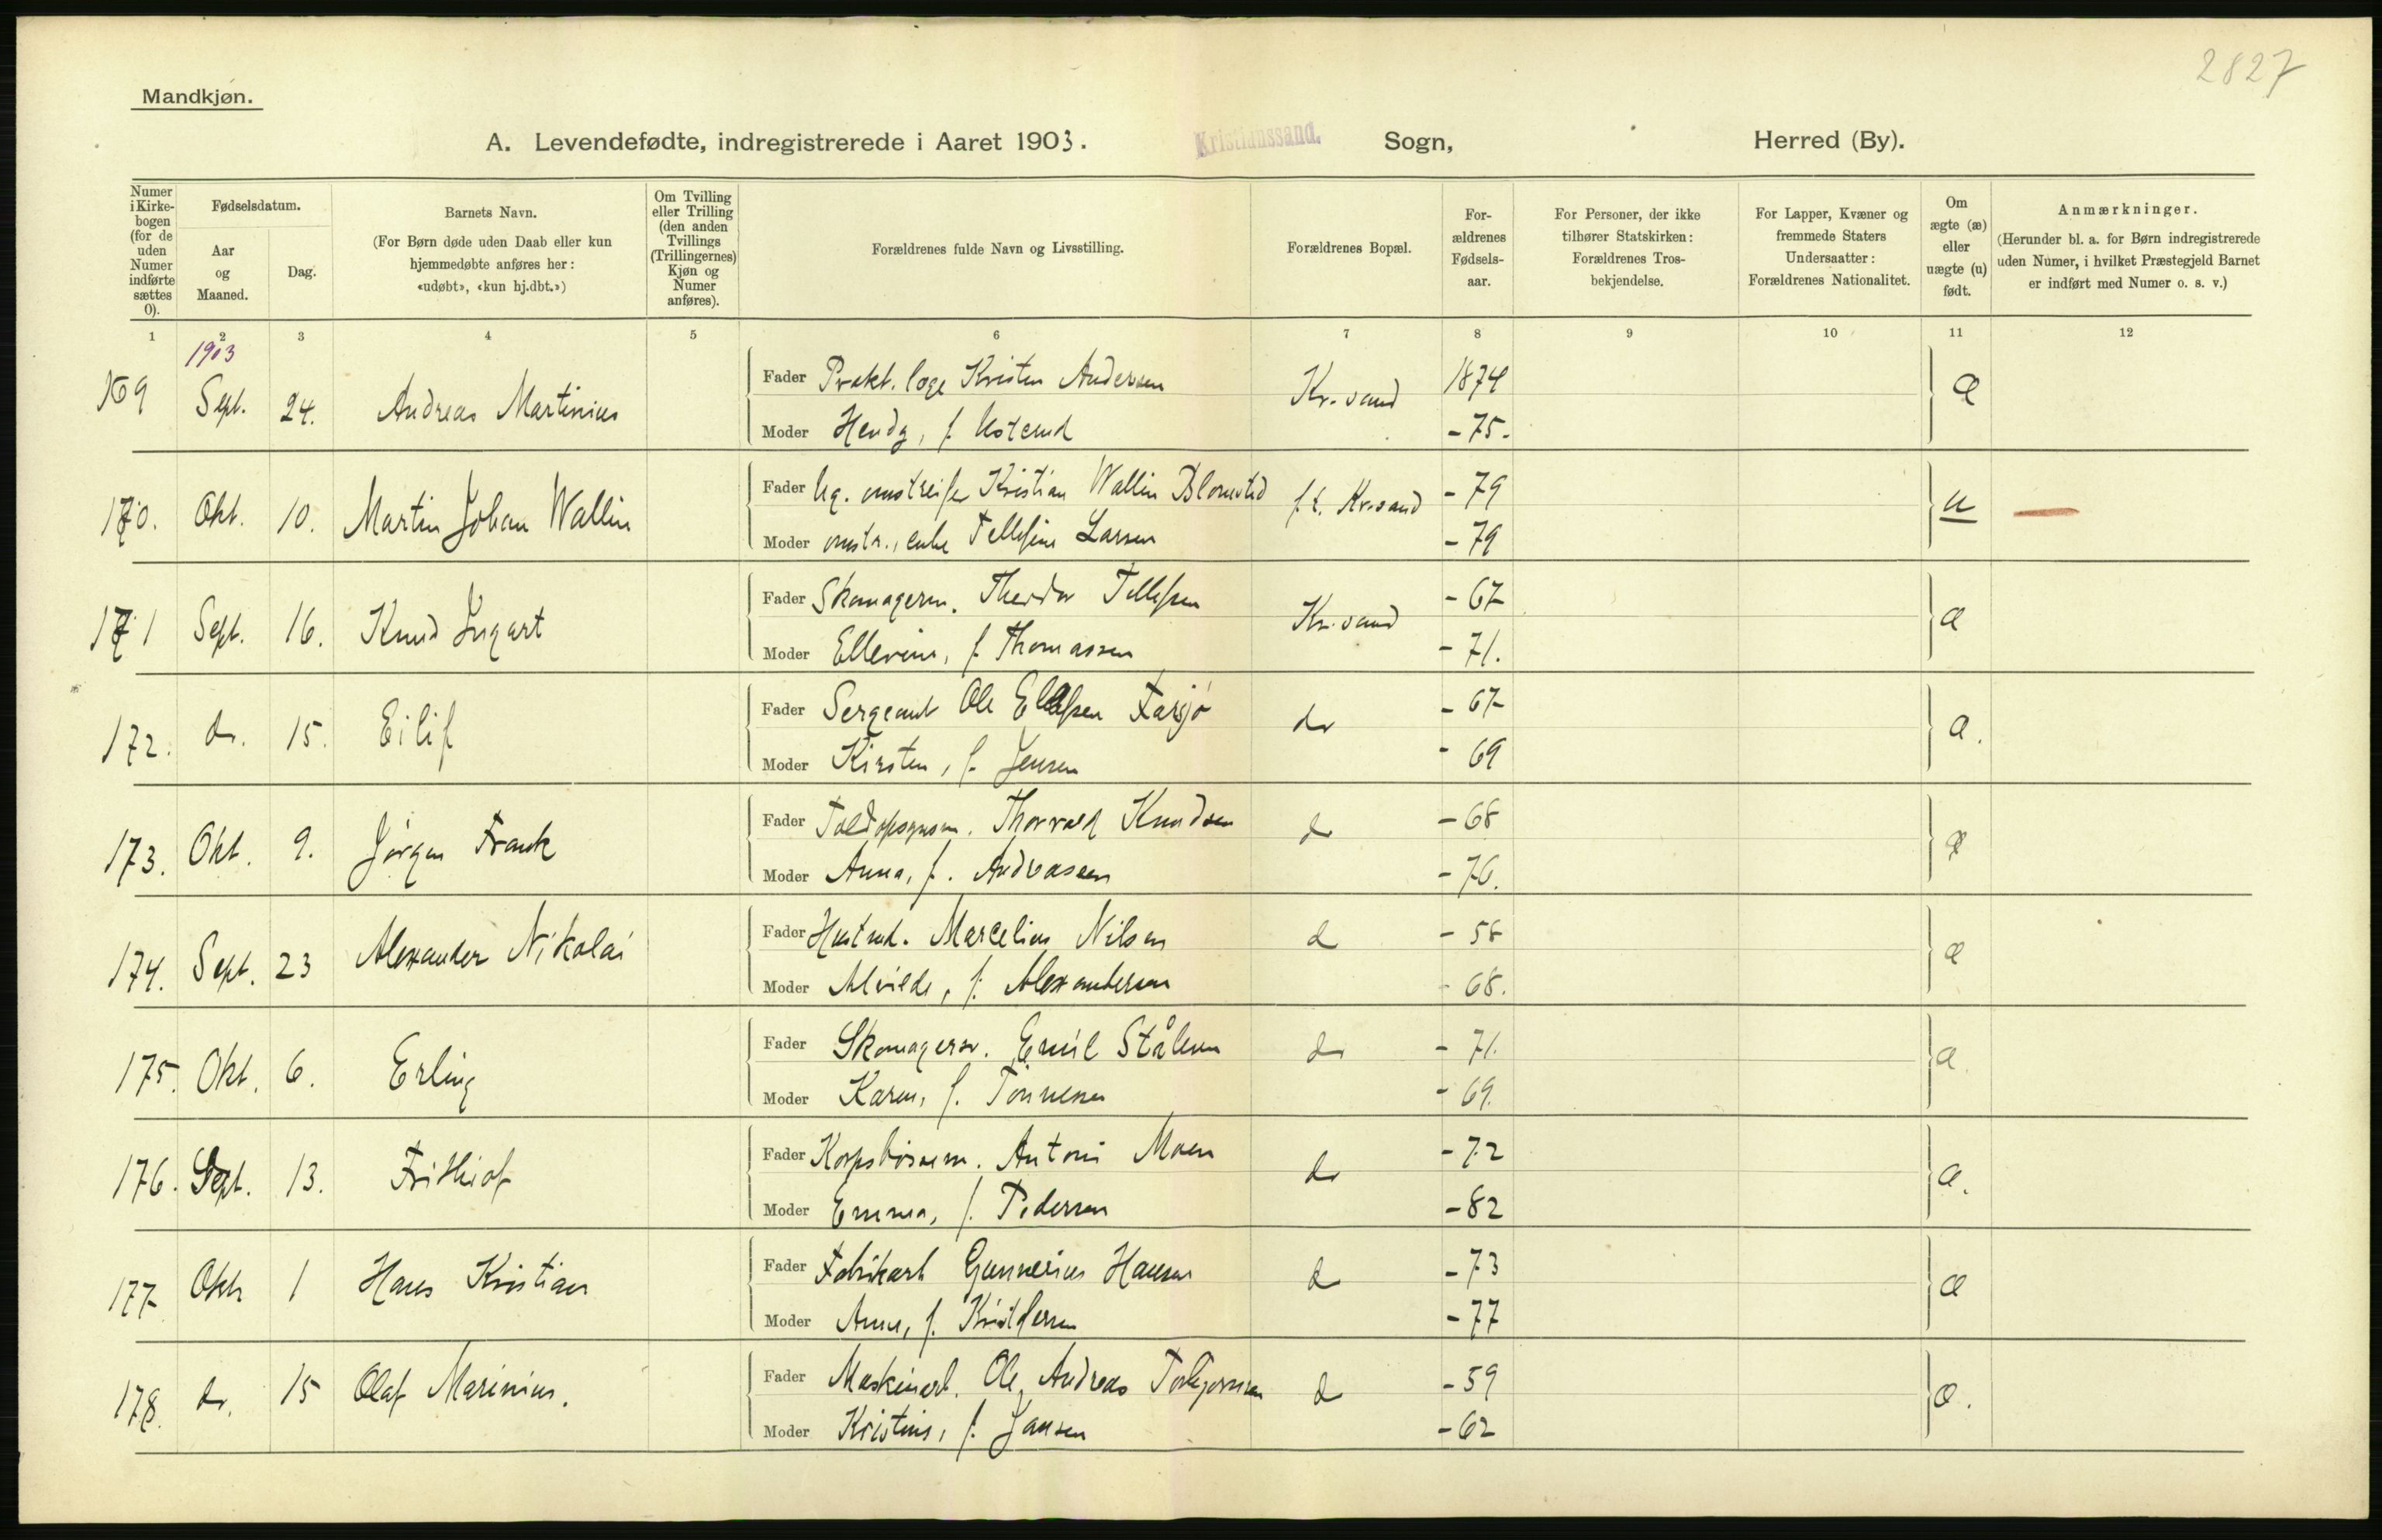 2827
Mandkjøn.
A. Levendefødte, indregistrerede i Aaret 1903. Kristianssand. Sogn, Herred (By).
Numer i Kirkebogen (for de uden Numer indførte sættes 0).
Fødselsdatum.
Aar og Maaned.
Dag.
Barnets Navn.
(For Børn døde uden Daab eller kun hjemmedøbte anføres her: «udøbt», «kun hj.dbt.»)
Om Tvilling eller Trilling (den anden Tvillings (Trillingernes) Kjøn og Numer anføres).
Forældrenes fulde Navn og Livsstilling.
Forældrenes Bopæl.
For-ældrenes Fødsels-aar.
For Personer, der ikke tilhører Statskirken: Forældrenes Tros-bekjendelse.
For Lapper, Kvæner og fremmede Staters Undersaatter: Forældrenes Nationalitet.
Om ægte (æ) eller uægte (u) født.
Anmærkninger.
(Herunder bl. a. for Børn indregistrerede uden Numer, i hvilket Præstegjeld Barnet er indført med Numer o. s. v.)
1 2 3 4 5 6 7 8 9 10 11 12
1903
169 Sept. 24. Andreas Martinius Fader Prakt. læge Kristen Andersen Kr.sand 1874 æ
Moder f. -75.
170. Okt. 10. Martin Johan Wallin Fader Ug. omstreifer Kristian Wallin Blomsted f.t. Kr.sand -79 u
Moder omstr., enke Tellefine Larsen -79
171 Sept. 16. Knud Ingart Fader Skomagerm. Theodor Tellefsen Kr.sand -67 æ
Moder Ellevine, f. Thomassen -71.
172. do. 15. Eilif Fader Sergeant Ole Ellefsen Farsjø do -67
æ.
Moder Kirsten, f. Jensen - 69
173. Okt. 9. Jørgen Frank Fader Toldopsynsm. Thorvald Knudsen do -68 æ
Moder Anna, f. Andreasen -76.
174. Sept. 23 Alexander Nikolai Fader Marcelius Nilsen do - 58 æ
Moder Alvilde, f. Alexandersen - 68.
175. Okt. 6. Erling Fader Skomagersv. Emil Stålesen do - 71. æ
Moder Karen, f. Tønnesen - 69.
176. Sept. 13. Frithiof Fader Antoni Moen do -72 æ.
Moder Emma, f. Pedersen -82
177 Okt 1 Hans Kristian Fader Fabrikarb Gunnerius Hansen do -73 æ
Moder Anne, f. Kristofersen -77
178. do. 15 Olaf Marinius. Fader Maskinarb. Ole Andreas Torbjørnsen do -59 æ.
Moder Kristine, f. Jansen -62